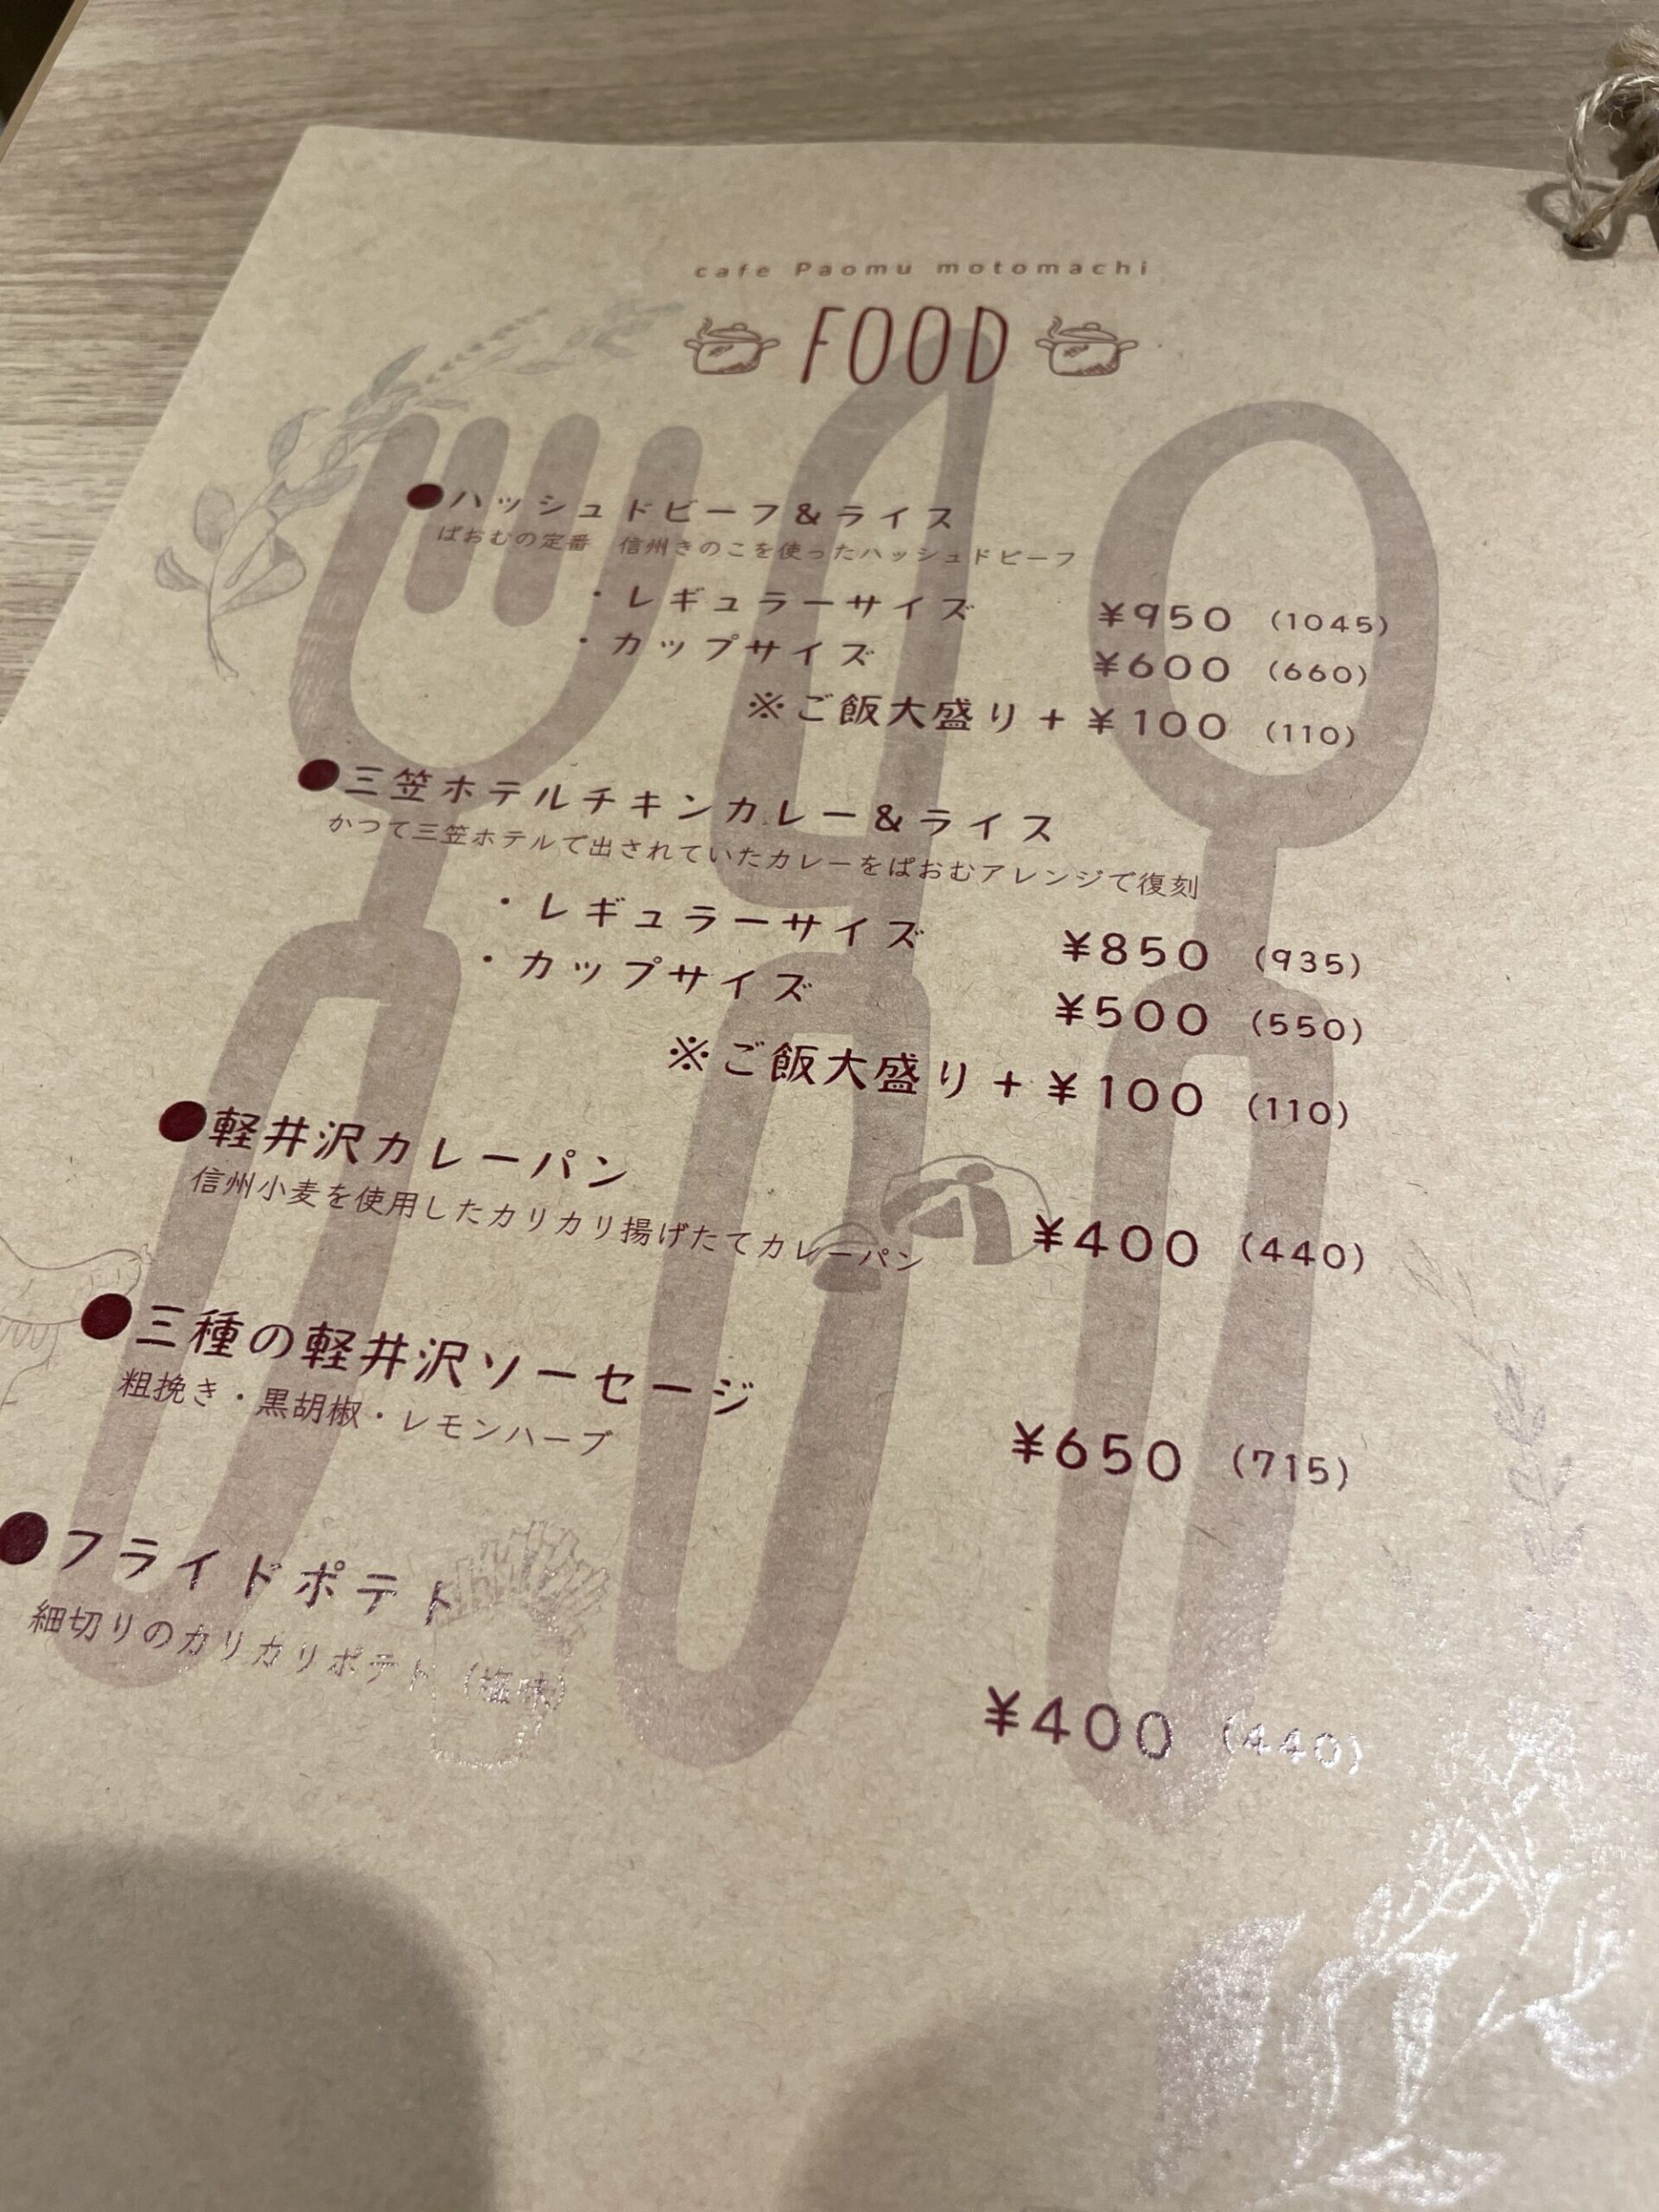 cafe Paomu motomachi
FOOD
●ハッシュドビーフ&ライス
ぱおむの定番 信州きのこを使ったハッシュドビーフ
・レギュラーサイズ ¥950 (1045)
・カップサイズ ¥600 (660)
※ご飯大盛り+¥100 (110)
●三笠ホテルチキンカレー&ライス
かつて三笠ホテルで出されていたカレーをぱおむアレンジで復刻
・レギュラーサイズ ¥850 (935)
・カップサイズ ¥500 (550)
※ご飯大盛り+¥100 (110)
●軽井沢カレーパン
信州小麦を使用したカリカリ揚げたてカレーパン
¥400 (440)
●三種の軽井沢ソーセージ
粗挽き・黒胡椒・レモンハーブ
¥650 (715)
●フライドポテト
細切りのカリカリポテト(塩味)
¥400 (440)